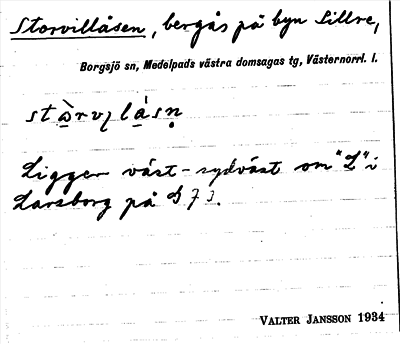 Storvillåsen, bergås på byn Sillre,
Borgsjö sn, Medelpads västra domsagas tg, Västernorrl. l.
Ligger väst-sydväst om "L" i
Larsborg på
VALTER JANSSON 1934